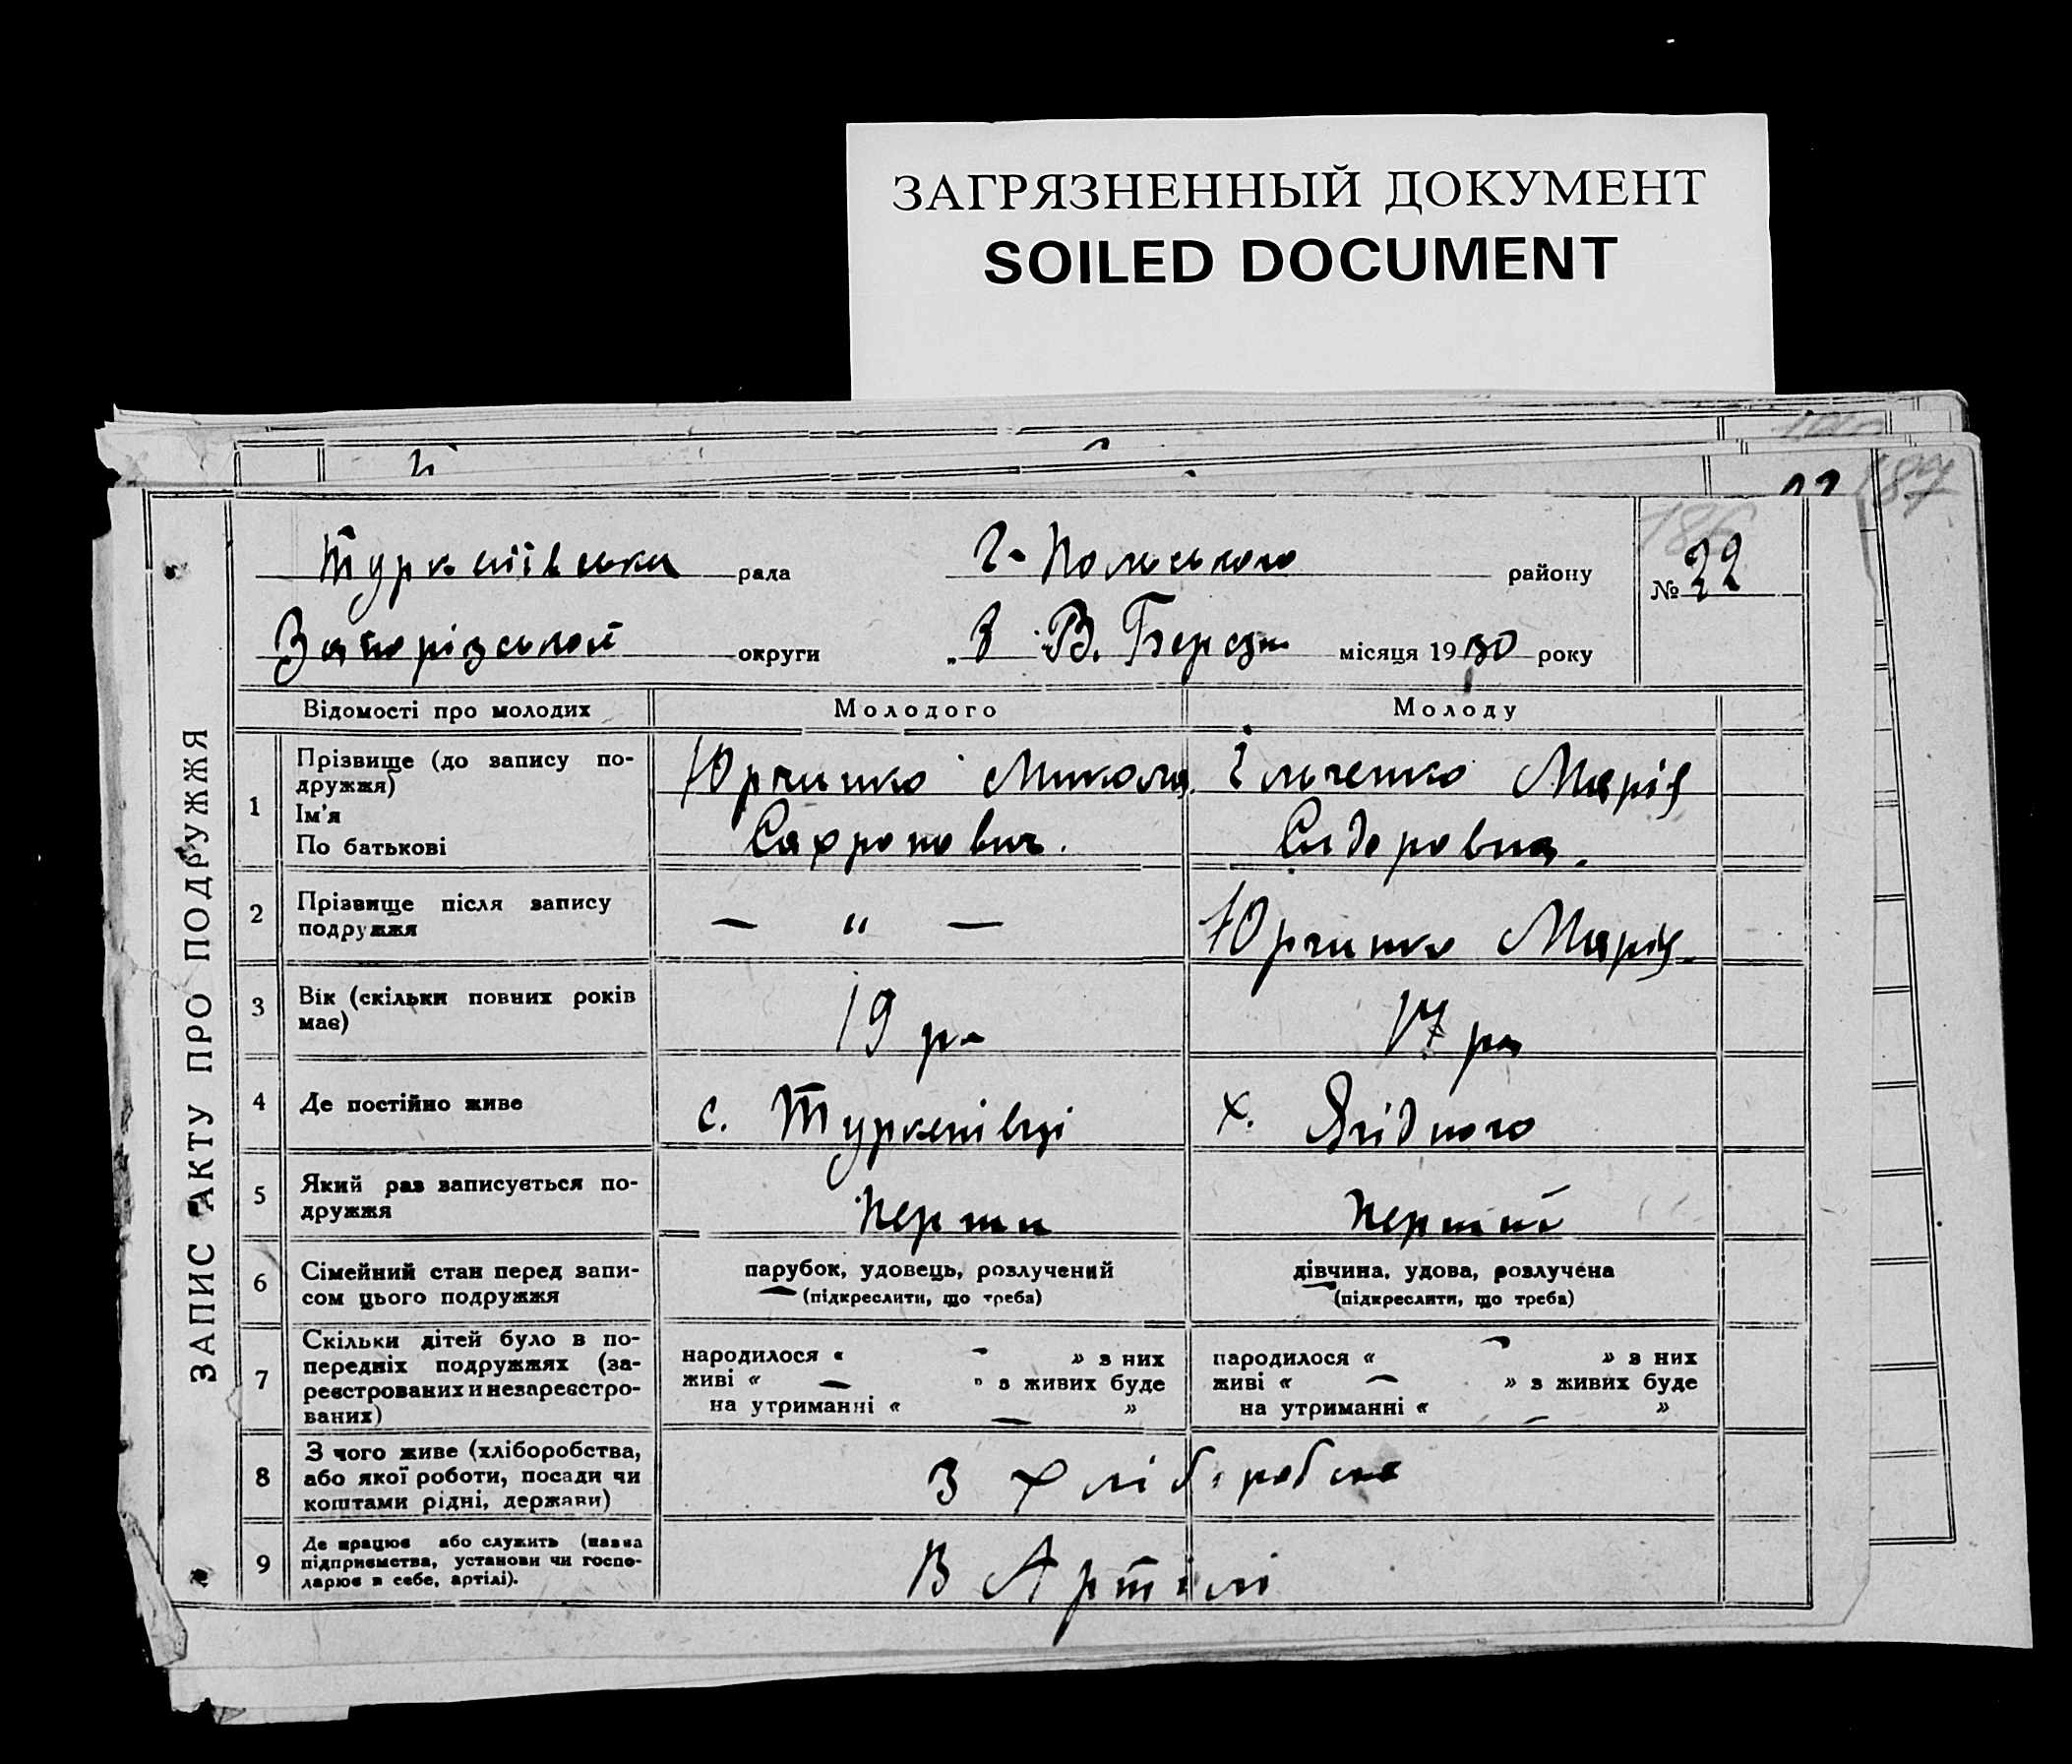 ЗАГРЯЗНЕННЫЙ ДОКУМЕНТ
SOILED DOCUMENT
187
186
ЗАПИС АКТУ ПРО ПОДРУЖЖЯ
рада Г-Польського району № 22
Запорізської округи „3 В. Березня місяця 1930 року
Відомості про молодих Молодого Молоду
1 Прізвище (до запису по-
дружжя)
Ім'я
По батькові
Юрченко Микола Сафронович.
Ільченко Марія Сидоровна.
2 Прізвище після запису
подружжя
— „ —
Юрченко Марія
3 Вік (скільки повних років
має)
19 р. 17 ро
4 Де постійно живе с. Туркенівці х. Ягідного
5 Який раз записується по-
дружжя
Перши Перший
6 Сімейний стан перед запи-
сом цього подружжя
парубок, удовець, розлучений
(підкреслити, що треба)
дівчина, удова, розлучена
(підкреслити, що треба)
7 Скільки дітей було в по-
передніх подружжях (за-
реєстрованих и незареєстро-
ваних)
народилося « — » з них
живі « — » з живих буде
на утриманні « — »
народилося « — » з них
живі « — » з живих буде
на утриманні « — »
8 З чого живе (хліборобства,
або якої роботи, посади чи
коштами рідні, держави)
З хліборобства
9 Де працює або служить (назва
підприємства, установи чи госпо-
дарює в себе, артілі).
В Артілі